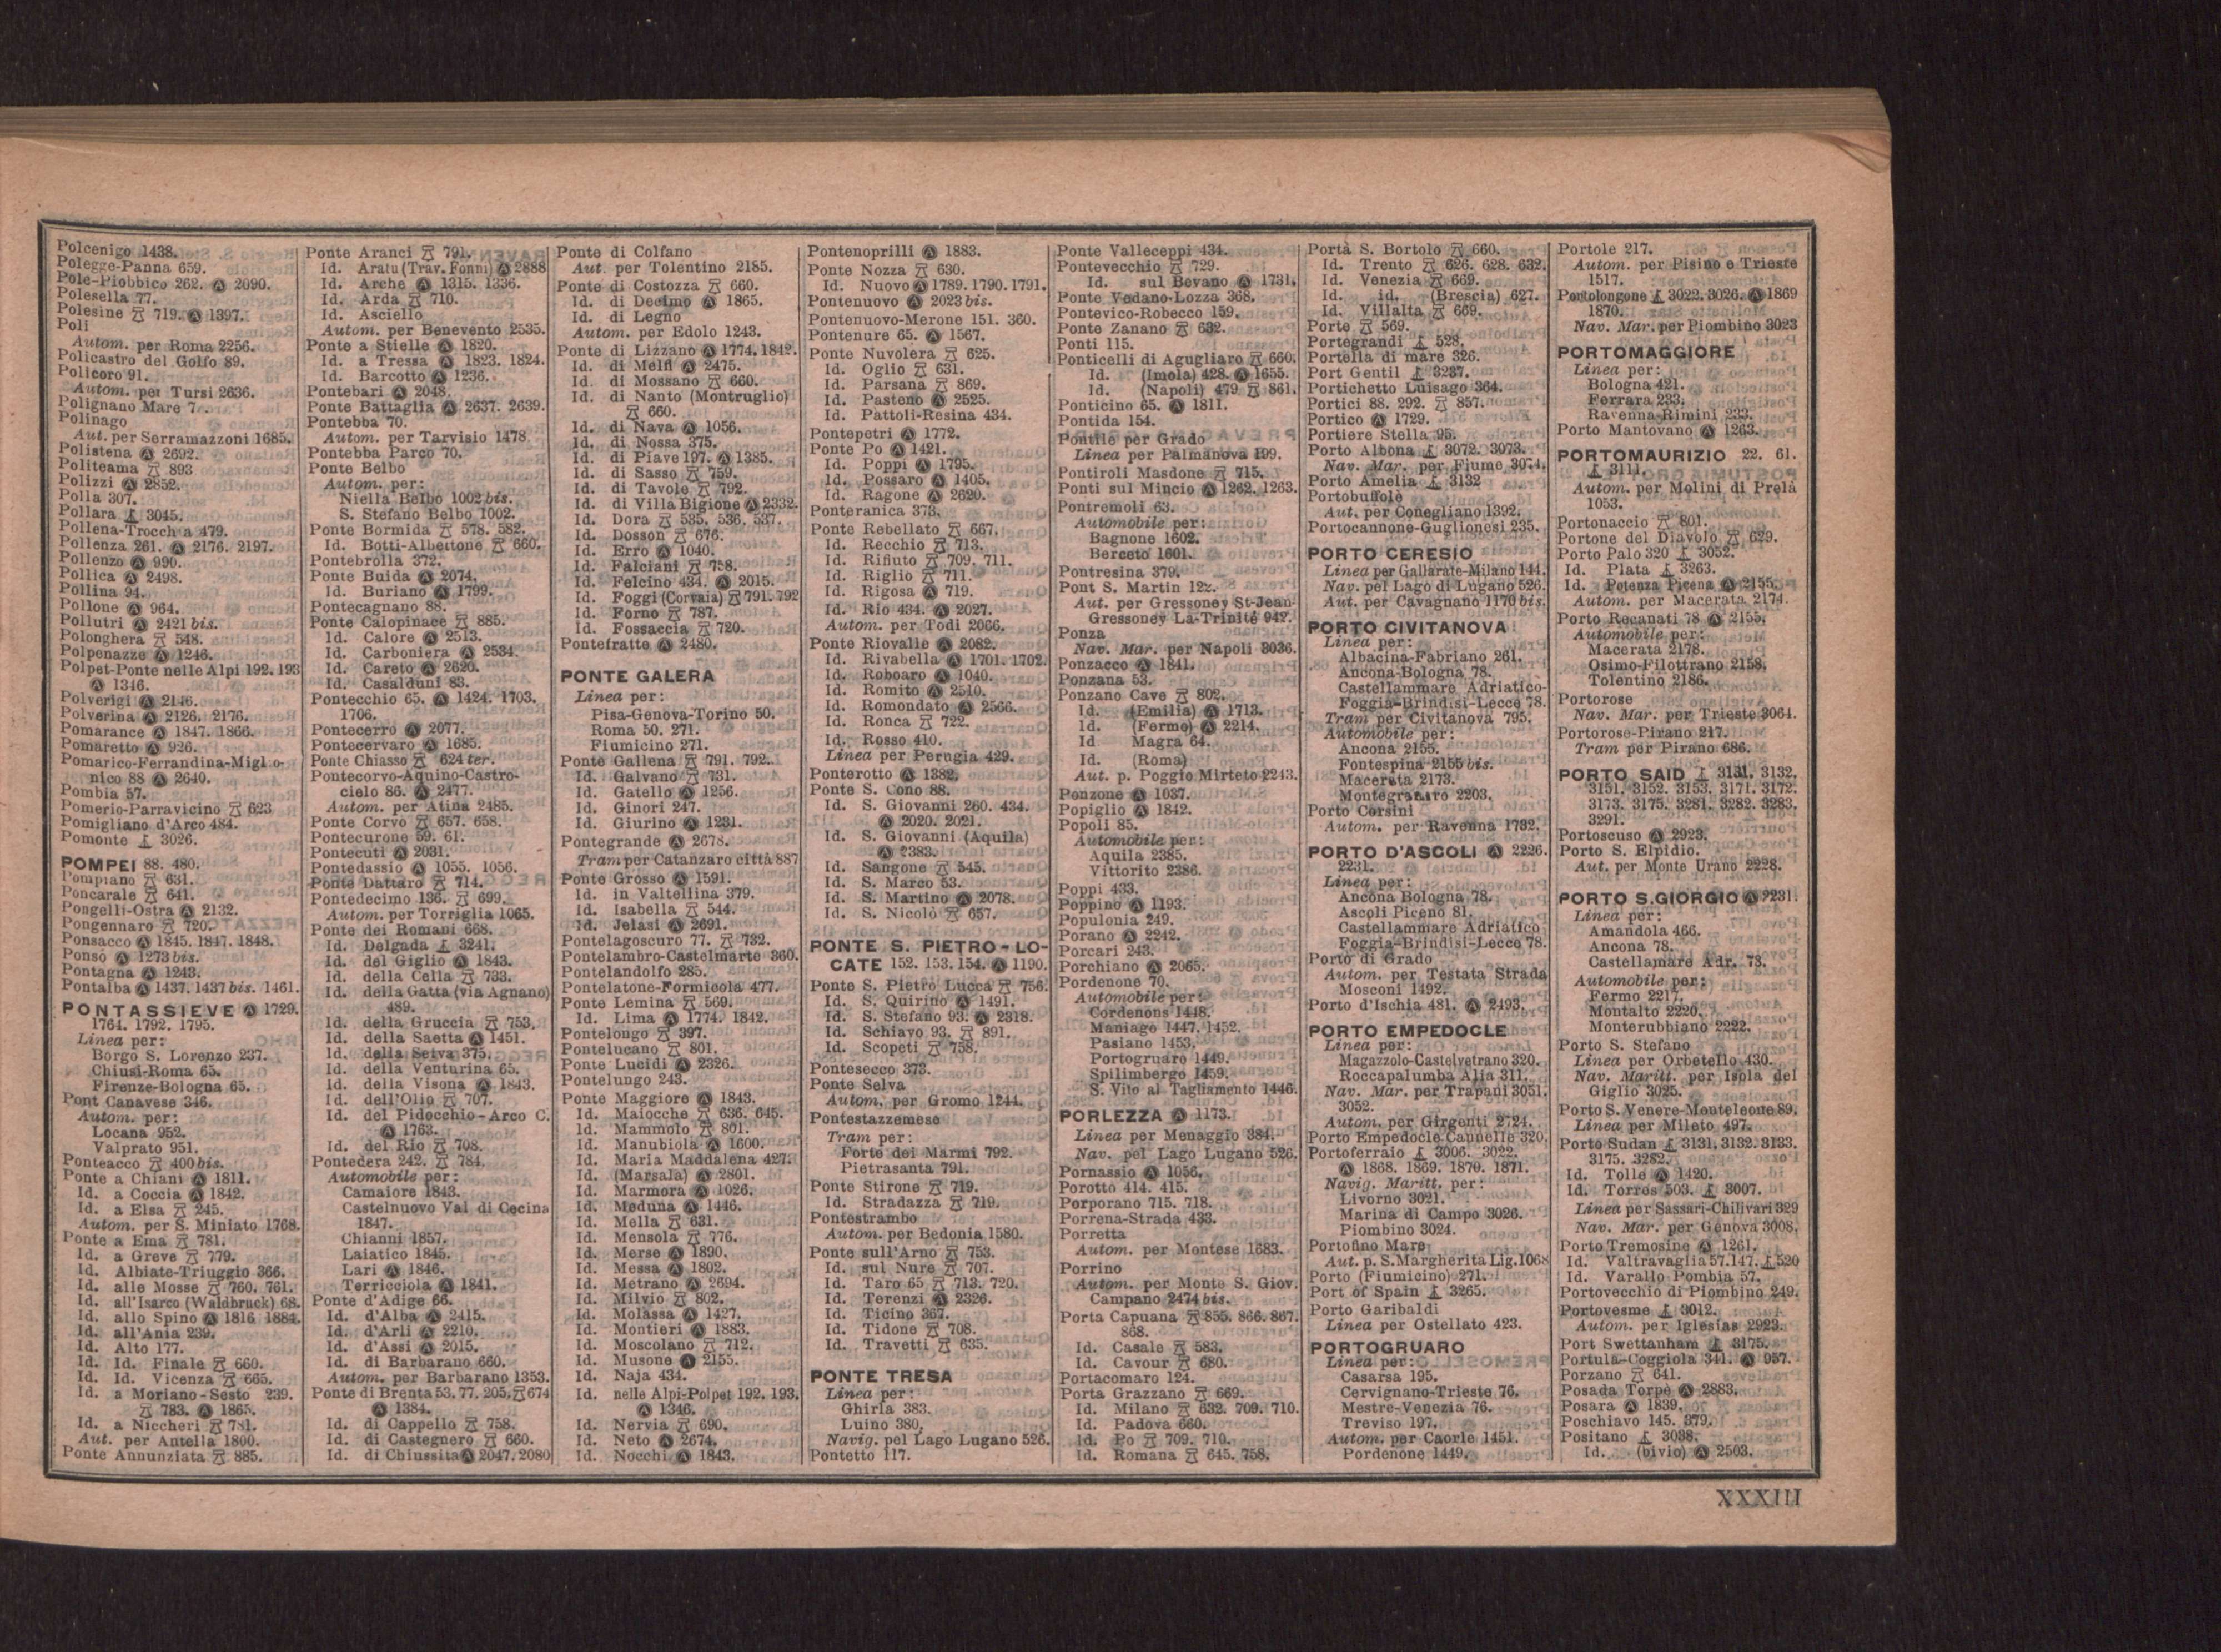 Polcenigo 1438.
Polegge-Panna 659.
Pole-Piobbico 262. Ⓐ 2090.
Polesella 77.
Polesine 719. Ⓐ 1397.
Poli
Autom. per Roma 2256.
Policastro del Golfo 89.
Policoro 91.
Autom. per Tursi 2636.
Polignano Mare
Polinago
Aut. per Serramazzoni 1685.
Polistena Ⓐ 2692.
Politeama 893
Polizzi Ⓐ 2852.
Polla 307.
Pollara 3045.
Pollena-Trocch a 479.
Pollenza 261. Ⓐ 2176. 2197.
Pollenzo Ⓐ 990.
Pollica Ⓐ 2498.
Pollina 94.
Pollone Ⓐ 964.
Pollutri Ⓐ 2421 bis.
Polonghera 548.
Polpenazze Ⓐ 1246.
Polpet-Ponte nelle Alpi 192. 193
Ⓐ 1346.
Polverigi Ⓐ 2146.
Polverina Ⓐ 2126. 2176.
Pomarance Ⓐ 1847. 1866.
Pomaretto Ⓐ 926.
Pomarico-Ferrandina-Migl o-
nico 88 Ⓐ 2640.
Pombia 57.
Pomerio-Parravicino 623
Pomigliano d'Arco 484.
Pomonte 3026.
POMPEI 88. 480.
Pompiano 631.
Poncarale 641.
Pongelli-Ostra Ⓐ 2132.
Pongennaro 720.
Ponsacco Ⓐ 1845. 1847. 1848.
Ponso Ⓐ 1273 bis.
Pontagna Ⓐ 1243.
Pontalba Ⓐ 1437. 1437 bis. 1461.
PONTASSIEVE Ⓐ 1729.
1764. 1792. 1795.
Linea per:
Borgo S. Lorenzo 237.
Chiusi-Roma 65.
Firenze-Bologna 65.
Pont Canavese 346.
Autom. per:
Locana 952.
Valprato 951.
Ponteacco 400 bis.
Ponte a Chiani Ⓐ 1811.
Id. a Coccia Ⓐ 1842.
Id. a Elsa 245.
Autom. per S. Miniato 1768.
Ponte a Ema 781.
Id. a Greve 779.
Id. Albiate-Triuggio 366.
Id. alle Mosse 760. 761.
Id. all'Isarco (Waldbruck) 68.
Id. allo Spino Ⓐ 1816 1884.
Id. all'Ania 239.
Id. Alto 177.
Id. Id. Finale 660.
Id. Id. Vicenza 665.
Id. a Moriano-Sesto 239.
783. Ⓐ 1865.
Id. a Niccheri 781.
Aut. per Antella 1800.
Ponte Annunziata 885.
Ponte Aranci 791.
Id. Aratu (Trav. Fonni) Ⓐ 2888
Id. Arche Ⓐ 1315. 1336.
Id. Arda 710.
Id. Asciello
Autom. per Benevento 2535.
Ponte a Stielle Ⓐ 1820.
Id. a Tressa Ⓐ 1823. 1824.
Id. Barcotto Ⓐ 1236.
Pontebari Ⓐ 2048.
Ponte Battaglia Ⓐ 2637. 2639.
Pontebba 70.
Autom. per Tarvisio 1478.
Pontebba Parco 70.
Ponte Belbo
Autom. per:
Niella Belbo 1002 bis.
S. Stefano Belbo 1002.
Ponte Bormida 578. 582.
Id. Botti-Albettone 660.
Pontebrolla 372.
Ponte Buida Ⓐ 2074.
Id. Buriano Ⓐ 1799.
Pontecagnano 88.
Ponte Calopinace 885.
Id. Calore Ⓐ 2513.
Id. Carboniera Ⓐ 2534.
Id. Careto Ⓐ 2620.
Id. Casalduni 83.
Pontecchio 65. Ⓐ 1424. 1703.
1706.
Pontecerro Ⓐ 2077.
Pontecervaro Ⓐ 1685.
Ponte Chiasso 624 ter.
Pontecorvo-Aquino-Castro-
cielo 86. Ⓐ 2477.
Autom. per Atina 2485.
Ponte Corvo 657. 658.
Pontecurone 59. 61.
Pontecuti Ⓐ 2031.
Pontedassio Ⓐ 1055. 1056.
Ponte Dattaro 714.
Pontedecimo 136. 699.
Autom. per Torriglia 1065.
Ponte dei Romani 668.
Id. Delgada 3241.
Id. del Giglio Ⓐ 1843.
Id. della Cella 733.
Id. della Gatta (via Agnano)
489.
Id. della Gruccia 753.
Id. della Saetta Ⓐ 1451.
Id. della Selva 375.
Id. della Venturina 65.
Id. della Visona Ⓐ 1843.
Id. dell'Olio 707.
Id. del Pidocchio-Arco C.
Ⓐ 1763.
Id. del Rio 708.
Pontedera 242. 784.
Automobile per:
Camaiore 1843.
Castelnuovo Val di Cecina
1847.
Chianni 1857.
Laiatico 1845.
Lari Ⓐ 1846.
Terricciola Ⓐ 1841.
Ponte d'Adige 66.
Id. d'Alba Ⓐ 2415.
Id. d'Arli Ⓐ 2210.
Id. d'Assi Ⓐ 2015.
Id. di Barbarano 660.
Autom. per Barbarano 1353.
Ponte di Brenta 53. 77. 205. 674
Ⓐ 1384.
Id. di Cappello 758.
Id. di Castegnero 660.
Id. di Chiussita Ⓐ 2047. 2080
Ponte di Colfano
Aut. per Tolentino 2185.
Ponte di Costozza 660.
Id. di Decimo Ⓐ 1865.
Id. di Legno
Autom. per Edolo 1243.
Ponte di Lizzano Ⓐ 1774. 1842.
Id. di Melfi Ⓐ 2475.
Id. di Mossano 660.
Id. di Nanto (Montruglio)
660.
Id. di Nava Ⓐ 1056.
Id. di Nossa 375.
Id. di Piave 197. Ⓐ 1385.
Id. di Sasso 759.
Id. di Tavole 792.
Id. di Villa Bigione Ⓐ 2332.
Id. Dora 535. 536. 537.
Id. Dosson 676.
Id. Erro Ⓐ 1040.
Id. Falciani 758.
Id. Felcino 434. Ⓐ 2015.
Id. Foggi (Corvaia) 791. 792
Id. Forno 787.
Id. Fossaccia 720.
Pontefratte Ⓐ 2480.
PONTE GALERA
Linea per:
Pisa-Genova-Torino 50.
Roma 50. 271.
Fiumicino 271.
Ponte Gallena 791. 792.
Id. Galvano 731.
Id. Gatello Ⓐ 1256.
Id. Ginori 247.
Id. Giurino Ⓐ 1231.
Pontegrande Ⓐ 2678.
Tram per Catanzaro città 887
Ponte Grosso Ⓐ 1591.
Id. in Valtellina 379.
Id. Isabella 544.
Id. Jelasi Ⓐ 2691.
Pontelagoscuro 77. 732.
Pontelambro-Castelmarte 360.
Pontelandolfo 285.
Pontelatone-Formicola 477.
Ponte Lemina 569.
Id. Lima Ⓐ 1774. 1842.
Pontelongo 397.
Pontelucano 801.
Ponte Lucidi Ⓐ 2326.
Pontelungo 243.
Ponte Maggiore Ⓐ 1843.
Id. Maiocche 636. 645.
Id. Mammolo 801.
Id. Manubiola Ⓐ 1600.
Id. Maria Maddalena 427.
Id. (Marsala) Ⓐ 2801.
Id. Marmora Ⓐ 1026.
Id. Meduna Ⓐ 1446.
Id. Mella 631.
Id. Mensola 776.
Id. Merse Ⓐ 1890.
Id. Messa Ⓐ 1802.
Id. Metrano Ⓐ 2694.
Id. Milvio 802.
Id. Molassa Ⓐ 1427.
Id. Montieri Ⓐ 1883.
Id. Moscolano 712.
Id. Musone Ⓐ 2155.
Id. Naja 434.
Id. nelle Alpi-Polpet 192. 193.
Ⓐ 1346.
Id. Nervia 690.
Id. Neto Ⓐ 2674.
Id. Nocchi Ⓐ 1843.
Pontenoprilli Ⓐ 1883.
Ponte Nozza 630.
Id. Nuovo Ⓐ 1789. 1790. 1791.
Pontenuovo Ⓐ 2023 bis.
Pontenuovo-Merone 151. 360.
Pontenure 65. Ⓐ 1567.
Ponte Nuvolera 625.
Id. Oglio 631.
Id. Parsana 869.
Id. Pasteno Ⓐ 2525.
Id. Pattoli-Resina 434.
Pontepetri Ⓐ 1772.
Ponte Po Ⓐ 1421.
Id. Poppi Ⓐ 1795.
Id. Possaro Ⓐ 1405.
Id. Ragone Ⓐ 2620.
Ponteranica 373.
Ponte Rebellato 667.
Id. Recchio 713.
Id. Rifiuto 709. 711.
Id. Riglio 711.
Id. Rigosa Ⓐ 719.
Id. Rio 434. Ⓐ 2027.
Autom. per Todi 2066.
Ponte Riovalle Ⓐ 2082.
Id. Rivabella Ⓐ 1701. 1702.
Id. Roboaro Ⓐ 1040.
Id. Romito Ⓐ 2510.
Id. Romondato Ⓐ 2566.
Id. Ronca 722.
Id. Rosso 410.
Linea per Perugia 429.
Ponterotto Ⓐ 1382.
Ponte S. Cono 88.
Id. S. Giovanni 260. 434.
Ⓐ 2020. 2021.
Id. S. Giovanni (Aquila)
Ⓐ 2383.
Id. Sangone 545.
Id. S. Marco 53.
Id. S. Martino Ⓐ 2078.
Id. S. Nicolò 657.
PONTE S. PIETRO-LO-
CATE 152. 153. 154. Ⓐ 1190.
Ponte S. Pietro Lucca 756.
Id. S. Quirino Ⓐ 1491.
Id. S. Stefano 93. Ⓐ 2318.
Id. Schiavo 93. 891.
Id. Scopeti 758.
Pontesecco 373.
Ponte Selva
Autom. per Gromo 1244.
Pontestazzemese
Tram per:
Forte dei Marmi 792.
Pietrasanta 791.
Ponte Stirone 719.
Id. Stradazza 719.
Pontestrambo
Autom. per Bedonia 1580.
Ponte sull'Arno 753.
Id. sul Nure 707.
Id. Taro 65 713. 720.
Id. Terenzi Ⓐ 2326.
Id. Ticino 367.
Id. Tidone 708.
Id. Travetti 635.
PONTE TRESA
Linea per:
Ghirla 383.
Luino 380.
Navig. pel Lago Lugano 526.
Pontetto 117.
Ponte Valleceppi 434.
Pontevecchio 729.
Id. sul Bevano Ⓐ 1731.
Ponte Vedano-Lozza 368.
Pontevico-Robecco 159.
Ponte Zanano 632.
Ponti 115.
Ponticelli di Agugliaro 660.
Id. (Imola) 428. Ⓐ 1655.
Id. (Napoli) 479 861.
Ponticino 65. Ⓐ 1811.
Pontida 154.
Pontile per Grado
Linea per Palmanova
Pontiroli Masdone 715.
Ponti sul Mincio Ⓐ 1262. 1263.
Pontremoli 63.
Automobile per:
Bagnone 1602.
Berceto 1601.
Pontresina 379.
Pont S. Martin 122.
Aut. per Gressoney St-Jean-
Gressoney La-Trinité 942.
Ponza
Nav. Mar. per Napoli 3036.
Ponzacco Ⓐ 1841.
Ponzana 53.
Ponzano Cave 802.
Id. (Emilia) Ⓐ 1713.
Id. (Fermo) Ⓐ 2214.
Id Magra 64.
Id. (Roma)
Aut. p. Poggio Mirteto 2243.
Ponzone Ⓐ 1037.
Popiglio Ⓐ 1842.
Popoli 85.
Automobile per:
Aquila 2385.
Vittorito 2386.
Poppi 433.
Poppino Ⓐ 1193.
Populonia 249.
Porano Ⓐ 2242.
Porcari 243.
Porchiano Ⓐ 2065.
Pordenone 70.
Automobile per:
Cordenons 1448.
Maniago 1447. 1452.
Pasiano 1453.
Portogruaro 1449.
Spilimbergo 1459.
S. Vito al Tagliamento 1446.
PORLEZZA Ⓐ 1173.
Linea per Menaggio 384.
Nav. pel Lago Lugano 526.
Pornassio Ⓐ 1056.
Porotto 414. 415.
Porporano 715. 718.
Porrena-Strada 433.
Porretta
Autom. per Montese 1683.
Porrino
Autom. per Monte S. Giov.
Campano 2474 bis.
Porta Capuana 855. 866. 867.
868.
Id. Casale 583.
Id. Cavour 680.
Portacomaro 124.
Porta Grazzano 669.
Id. Milano 632. 709. 710.
Id. Padova 660.
Id. Po 709. 710.
Id. Romana 645. 758.
Portà S. Bortolo 660.
Id. Trento 626. 628. 632.
Id. Venezia 669.
Id. id. (Brescia) 627.
Id. Villalta 669.
Porte 569.
Portegrandi 528.
Portella di mare 326.
Port Gentil 3237.
Portichetto Luisago 364.
Portici 88. 292. 857.
Portico Ⓐ 1729.
Portiere Stella 95.
Porto Albona 3072. 3073.
Nav. Mar. per Fiume 3074.
Porto Amelia 3132
Portobuffolè
Aut. per Conegliano 1392.
Portocannone-Guglionesi 235.
PORTO CERESIO
Linea per Gallarate-Milano 144.
Nav. pel Lago di Lugano 526.
Aut. per Cavagnano 1170 bis.
PORTO CIVITANOVA
Linea per:
Albacina-Fabriano 261.
Ancona-Bologna 78.
Castellammare Adriatico-
Foggia-Brindisi-Lecce 78.
Tram per Civitanova 795.
Automobile per:
Ancona 2155.
Fontespina 2155 bis.
Macerata 2173.
Montegranaro 2203.
Porto Corsini
Autom. per Ravenna 1732.
PORTO D'ASCOLI Ⓐ 2226.
2231.
Linea per:
Ancona Bologna 78.
Ascoli Piceno 81.
Castellammare Adriatico
Foggia-Brindisi-Lecce 78.
Porto di Grado
Autom. per Testata Strada
Mosconi 1492.
Porto d'Ischia 481. Ⓐ 2493.
PORTO EMPEDOCLE
Linea per:
Magazzolo-Castelvetrano 320.
Roccapalumba Alia 311.
Nav. Mar. per Trapani 3051.
3052.
Autom. per Girgenti 2724.
Porto Empedocle Cannelle 320.
Portoferraio 3006. 3022.
Ⓐ 1868. 1869. 1870. 1871.
Navig. Maritt. per:
Livorno 3021.
Marina di Campo 3026.
Piombino 3024.
Portofino Mare
Aut. p. S. Margherita Lig. 1068
Porto (Fiumicino) 271.
Port of Spain 3265.
Porto Garibaldi
Linea per Ostellato 423.
PORTOGRUARO
Linea per:
Casarsa 195.
Cervignano-Trieste 76.
Mestre-Venezia 76.
Treviso 197.
Autom. per Caorle 1451.
Pordenone 1449.
Portole 217.
Autom. per Pisino e Trieste
1517.
Portolongone 3022. 3026. Ⓐ 1869
1870.
Nav. Mar. per Piombino 3023
PORTOMAGGIORE
Linea per:
Bologna 421.
Ferrara 233.
Ravenna-Rimini 233.
Porto Mantovano Ⓐ 1263.
PORTOMAURIZIO 22. 61.
3111.
Autom. per Molini di Prelà
1053.
Portonaccio 801.
Portone del Diavolo 629.
Porto Palo 320 3052.
Id. Plata 3263.
Id. Potenza Picena Ⓐ 2155.
Autom. per Macerata 2174.
Porto Recanati 78 Ⓐ 2155.
Automobile per:
Macerata 2178.
Osimo-Filottrano 2158.
Tolentino 2186.
Portorose
Nav. Mar. per Trieste 3064.
Portorose-Pirano 217.
Tram per Pirano 686.
PORTO SAID 3131. 3132.
3151. 3152. 3153. 3171. 3172.
3173. 3175. 3281. 3282. 3283.
3291.
Portoscuso Ⓐ 2923.
Porto S. Elpidio.
Aut. per Monte Urano 2228.
PORTO S. GIORGIO Ⓐ 2231.
Linea per:
Amandola 466.
Ancona 78.
Castellamare Adr. 78.
Automobile per:
Fermo 2217.
Montalto 2220.
Monterubbiano 2222.
Porto S. Stefano
Linea per Orbetello 430.
Nav. Maritt. per Isola del
Giglio 3025.
Porto S. Venere-Monteleone 89.
Linea per Mileto 497.
Porto Sudan 3131. 3132. 3133.
3175. 3282.
Id. Tolle Ⓐ 1420.
Id. Torres 503. 3007.
Linea per Sassari-Chilivari 329
Nav. Mar. per Genova 3008.
Porto Tremosine Ⓐ 1261.
Id. Valtravaglia 57. 147. 520
Id. Varallo Pombia 57.
Portovecchio di Piombino 249.
Portovesme 3012.
Autom. per Iglesias 2923.
Port Swettanham 3175.
Portula-Coggiola 341. Ⓐ 957.
Porzano 641.
Posada Torpè Ⓐ 2883.
Posara Ⓐ 1839.
Poschiavo 145. 379.
Positano 3038.
Id. (bivio) Ⓐ 2503.
XXXIII